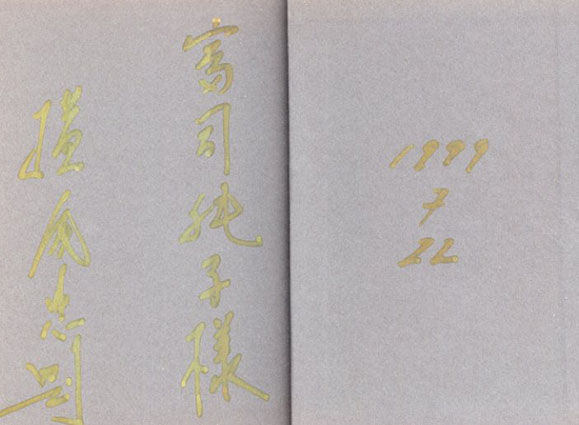 富司純子様
横尾忠則
1999
7
22